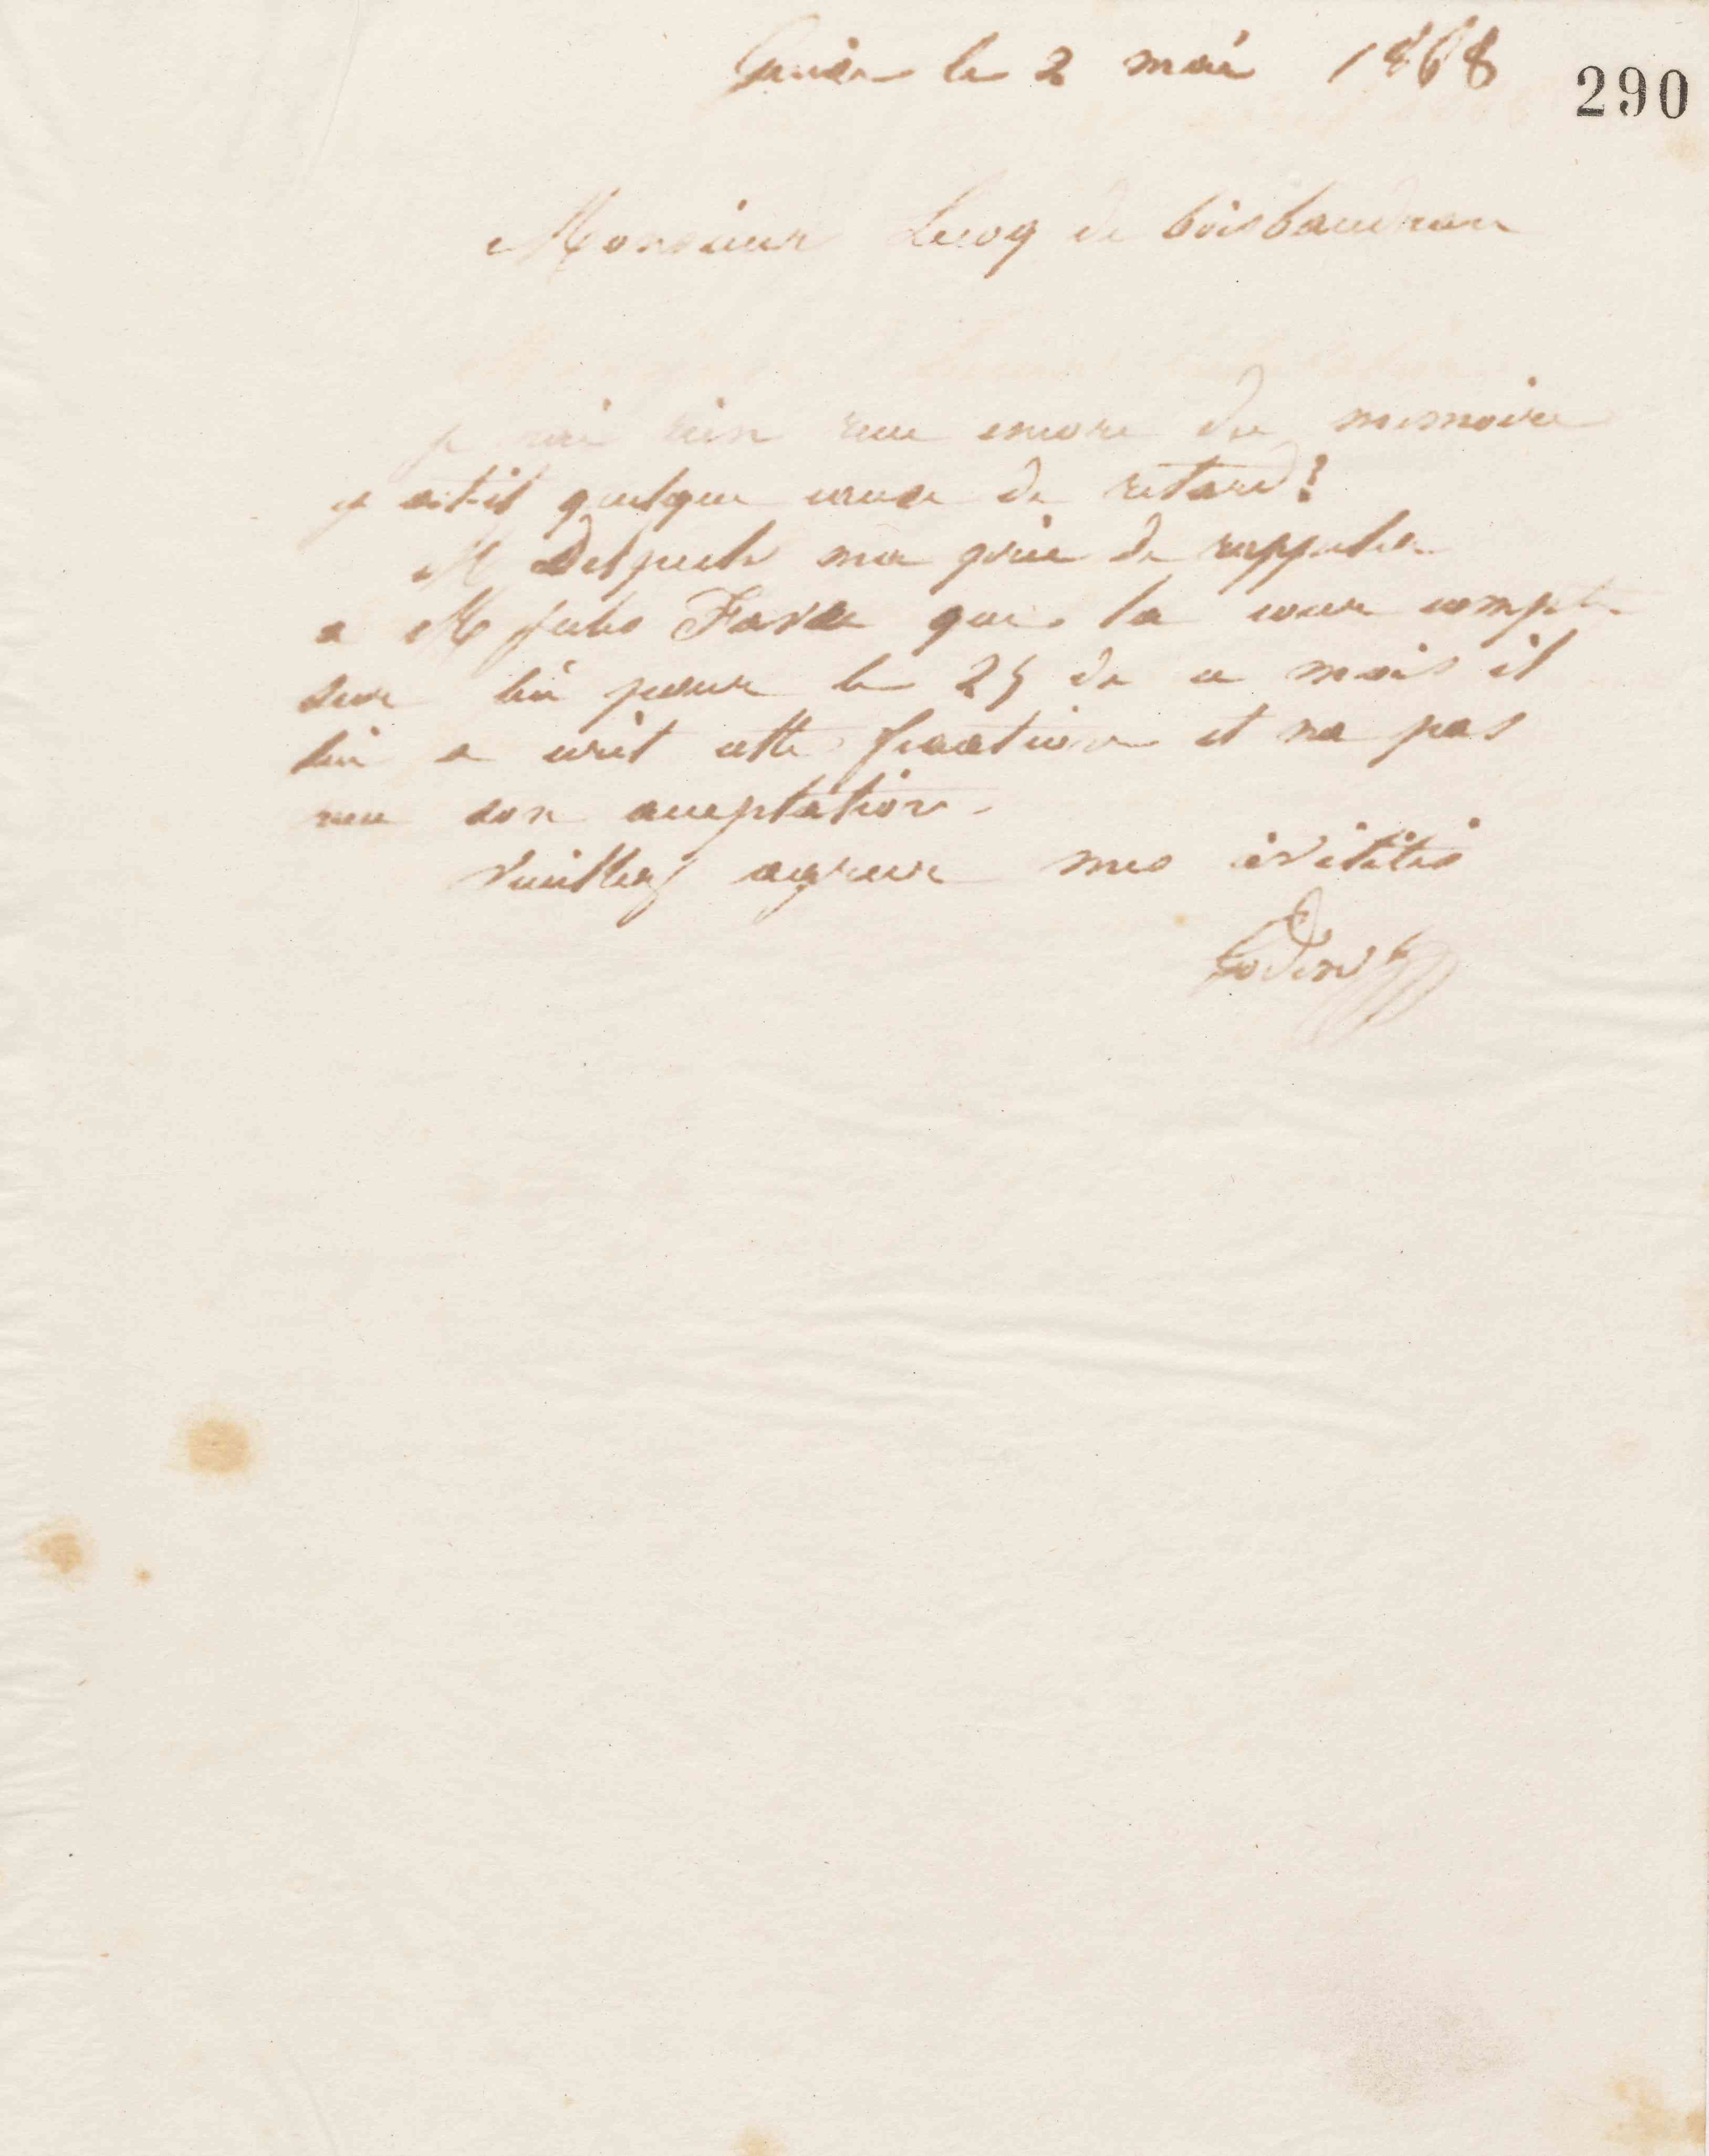 Guise le 2 mai 1868
290
Monsieur Lecoq de boisbaudran
je n'ai rien recu encore du memoire
y a-t-il quelque cause de retard?
M Delpech ma prie de rappeler
a M Jules Favre que la cour compte
sur lui pour le 25 de ce mois il
lui a ecrit cette fixation et na pas
recu son acceptation.
Veuillez agreer mes civilités
Godin